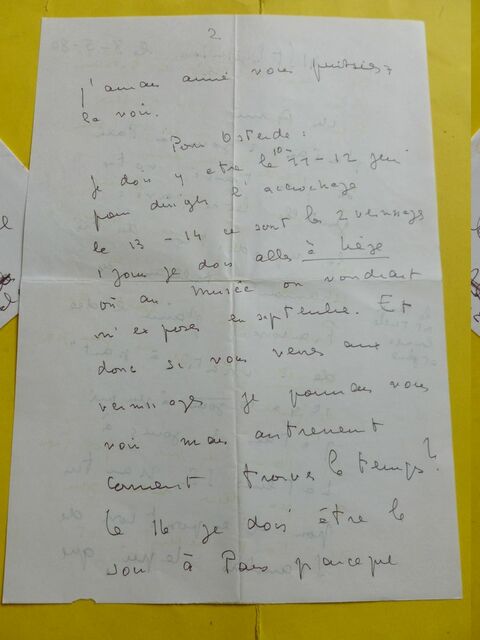 2
J'aurais aimé vous puissiez
la voir.
Pour Ostende:
Je dois y etre le 10-11-12 Juin
pour diriger l'accrochage
le 13-14 ce sont les 2 vernissages
1 jour je dois aller à Liège
où au Musée on voudrait
m'exposer en septembre. Et
donc si vous venez aux
vernissages je pourrais vous
voir mais autrement
comment trouver le temps?
Le 16 je dois être le
soir à Paris parceque
le 8-5-80